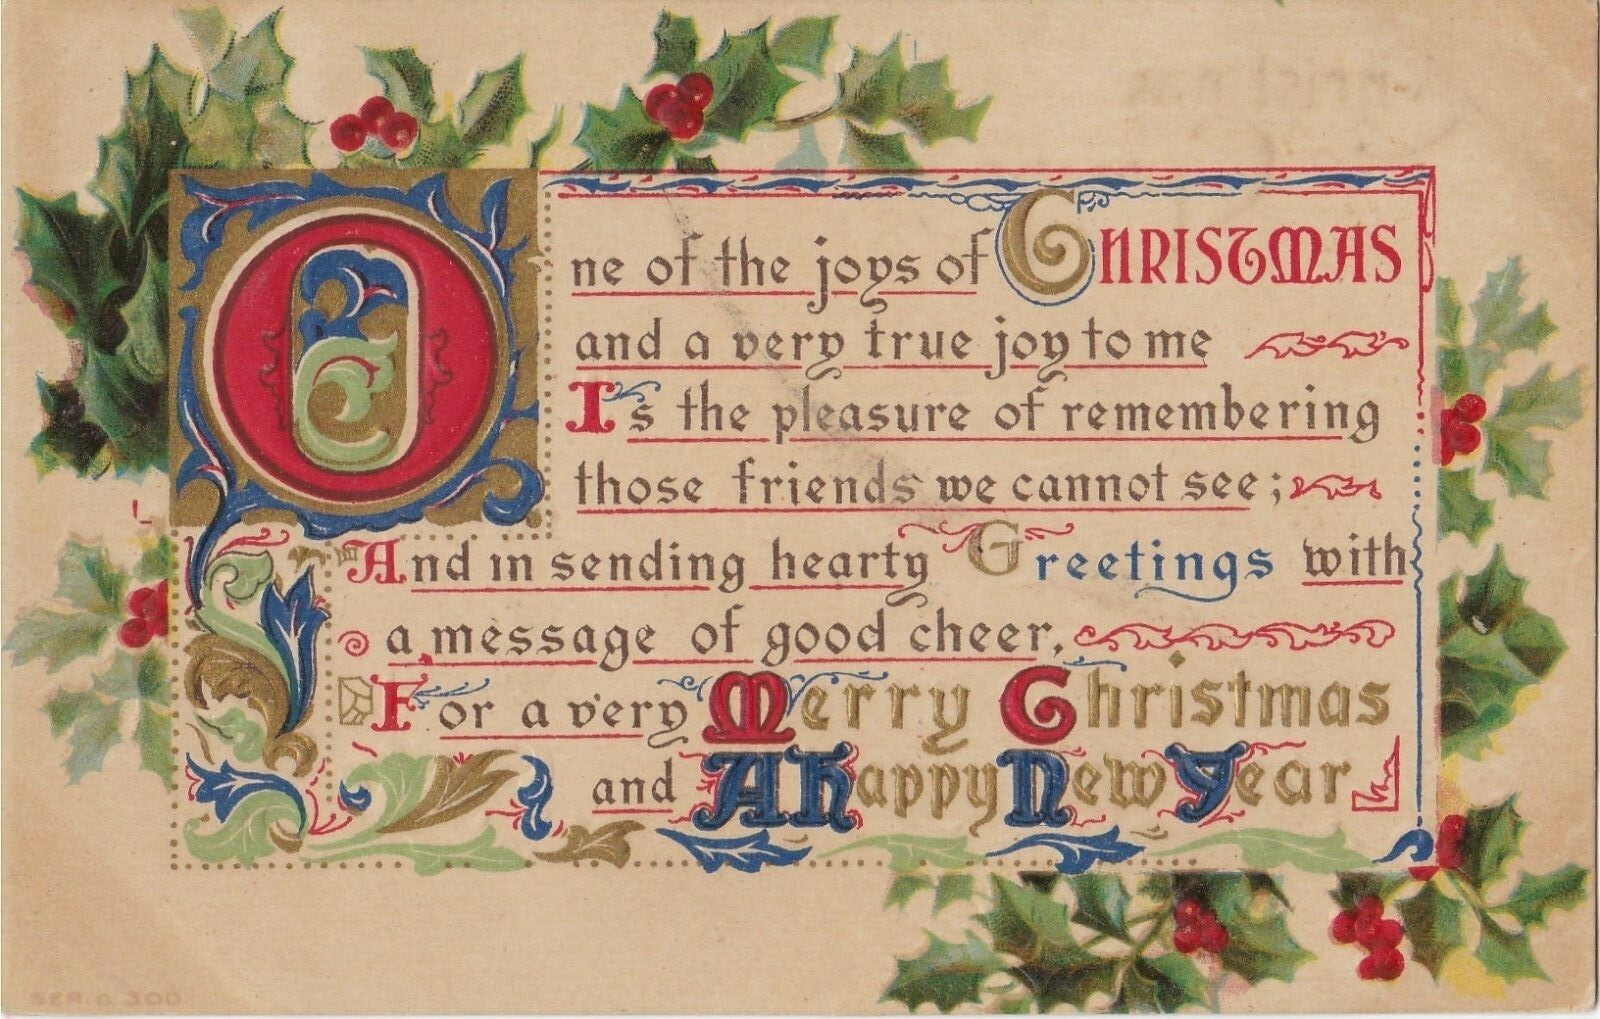 One of the joys of CHRISTMAS
and a very true joy to me
Is the pleasure of remembering
those friends we cannot see;
And in sending hearty Greetings with
a message of good cheer,
For a very Merry Christmas
and A Happy New Year
SER. O. 300